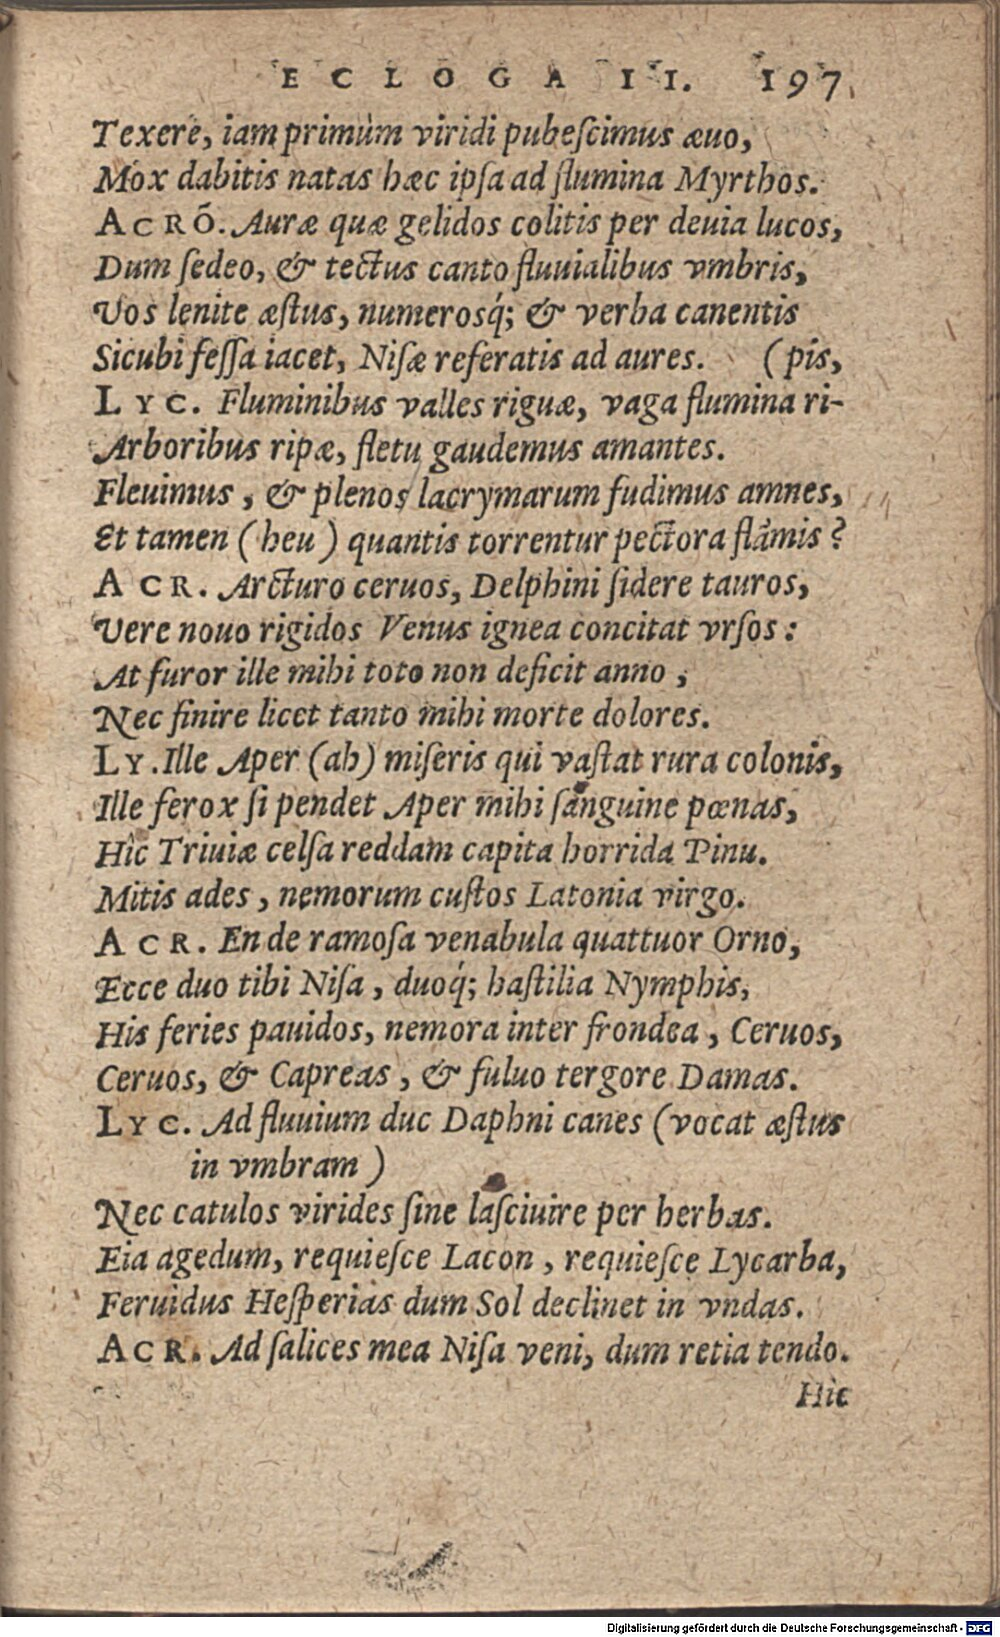 ECLOGA II. 197
Texere, iam primùm viridi pubeſcimus æuo,
Mox dabitis natas hæc ipſa ad flumina Myrthos.
ACRÕ. Auræ quæ gelidos colitis per deuia lucos,
Dum ſedeo, & tectus canto fluuialibus vmbris,
Vos lenite æſtus, numerosq́; & verba canentis
Sicubi feſſa iacet, Niſæ referatis ad aures. (pis,
LYC. Fluminibus valles riguæ, vaga flumina ri-
Arboribus ripæ, fletu gaudemus amantes.
Fleuimus, & plenos lacrymarum fudimus amnes,
Et tamen (heu) quantis torrentur pectora flãmis?
ACR. Arcturo ceruos, Delphini ſidere tauros,
Vere nouo rigidos Venus ignea concitat vrſos:
At furor ille mihi toto non deficit anno,
Nec finire licet tanto mihi morte dolores.
LY. Ille Aper (ah) miſeris qui vaſtat rura colonis,
Ille ferox ſi pendet Aper mihi ſanguine pœnas,
Hîc Triuiæ celſa reddam capita horrida Pinu.
Mitis ades, nemorum cuſtos Latonia virgo.
ACR. En de ramoſa venabula quattuor Orno,
Ecce duo tibi Niſa, duoq́; haſtilia Nymphis,
His feries pauidos, nemora inter frondea, Ceruos,
Ceruos, & Capreas, & fuluo tergore Damas.
LYC. Ad fluuium duc Daphni canes (vocat æſtus
in vmbram)
Nec catulos virides ſine laſciuire per herbas.
Eia agedum, requieſce Lacon, requieſce Lycarba,
Feruidus Heſperias dum Sol declinet in vndas.
ACR. Ad ſalices mea Niſa veni, dum retia tendo.
Hic
Digitalisierung gefördert durch die Deutsche Forschungsgemeinschaft - DFG